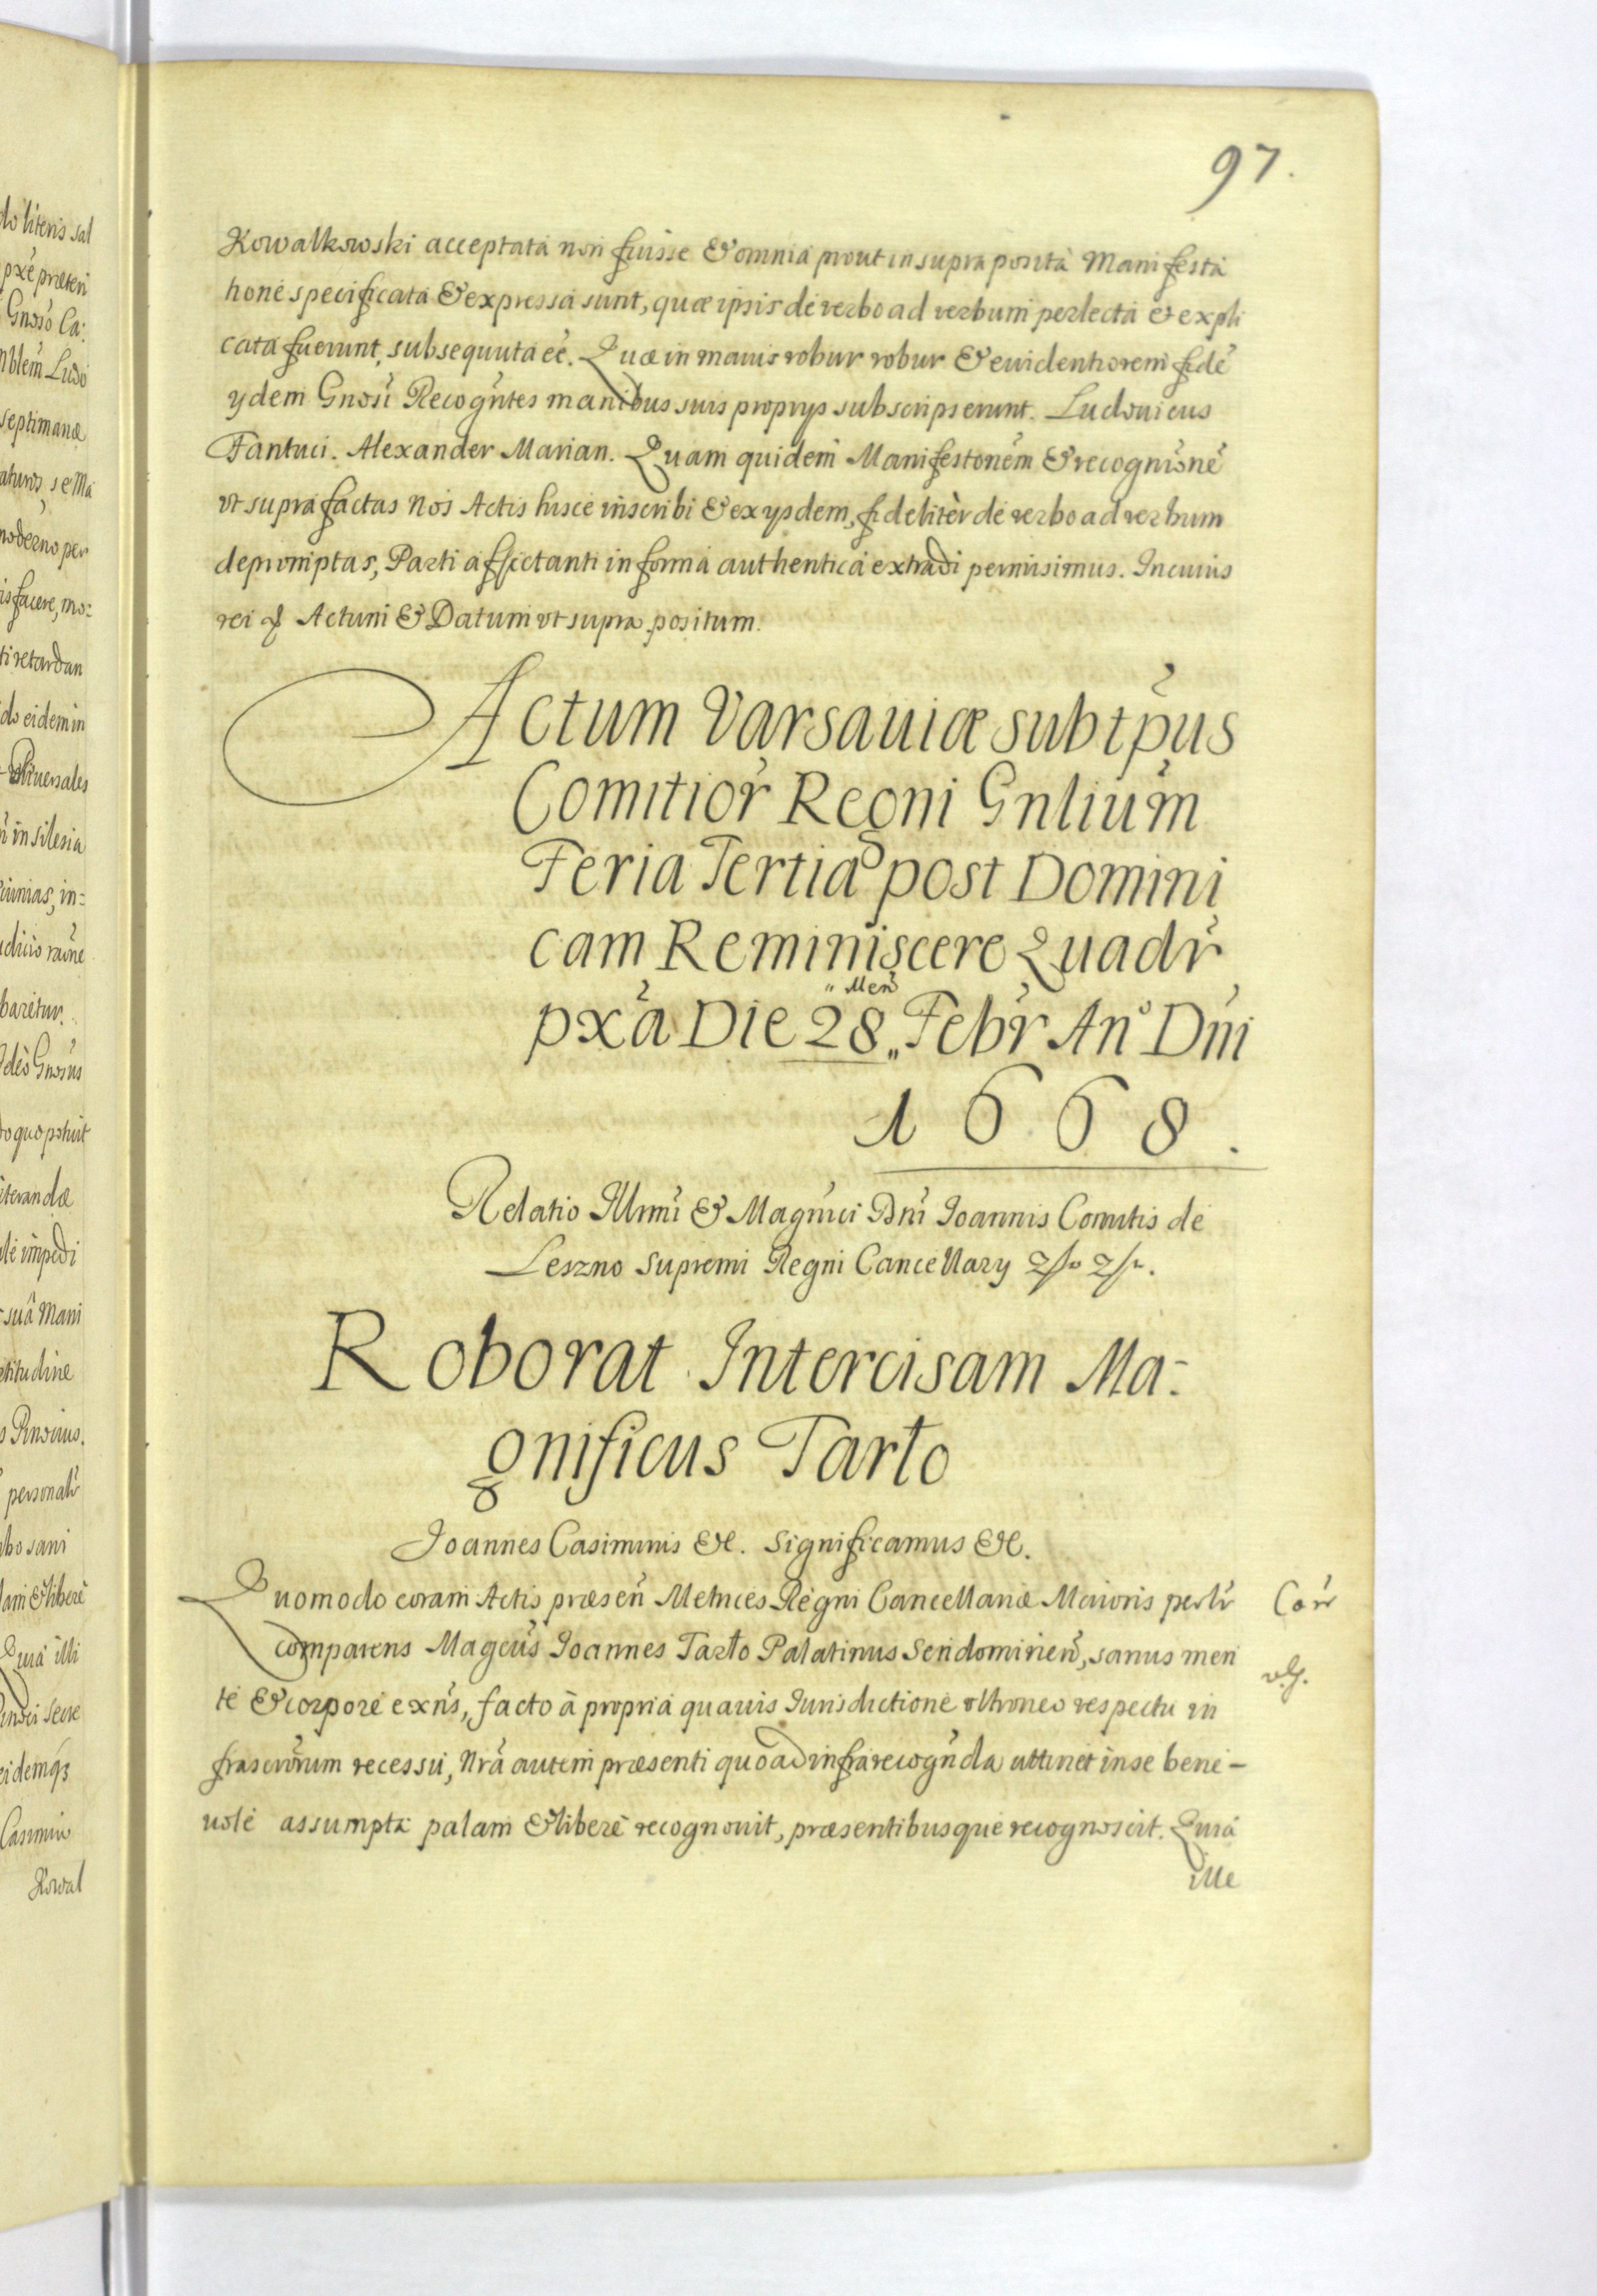 97.
Kowalkowski acceptata non fuisse & omnia prout in supra posita Manifesta
tione specificata & expressa sunt, quæ ipsis de verbo ad verbum perlecta et expli
cata fuerunt, subsequuta eē. Quæ in maius robur robur & euidentiorem fidē
ydem Gnosi Recogntes manibus suis proprys subscripserunt. Ludouicus
Fantuci. Alexander Marian. Quam quidem Manifestonem & recognionē
vt supra factas Nos Actis hisce inscribi & ex ysdem, fideliter de verbo ad verbum
depromptas, Parti affectanti in forma authentica extradi permisimus. In cuius
rei & Actum & Datum vt supra positum.
Actum Varsauiæ sub tpus
Comitior Regni Gnlium
Feria Tertia post Domini
cam Reminiscere Quadr
pxa Die 28 Men Febr Anº Dni
1668.
Relatio Illmi & Magnici Dni Joannis Comitis de
Leszno Supremi Regni Cancellary
Roborat Intercisam Ma-
gnificus Tarło
Joannes Casimirus &c. Significamus &c.
Quomodo coram Actis præsen Metrices Regni Cancellariæ Maioris perlr
comparens Magcus Joannes Tarło Palatinus Sendomirien, sanus men
te & corpore exns, facto à propria quauis Jurisdictione vltroneo respectu in
frascrorum recessu, Nrã autem præsenti quoad infra recognda attinet in se bene-
uole assumpta palam & liberè recognouit, præsentibusque recognoscit. Quia
ille
do literis sal
pxē præteri
Gnoso Ca:
Nblem Ludo
septimanæ
aturos, se Ma
moderno per
isfacere, mo:
ti retardan
do eidem in
Vniuersales
in Silesia
cunias, in-
udicio raōne
baretur.
Ideò Gnosus
o quo potuit
iterandæ
le impedi
suâ Mani
titudine
personalr
bo sani
lam & liberè
Quia illi
eidemq3
Casimir
Kowal